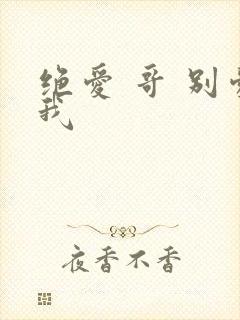 绝爱 哥 别
我
夜香不香